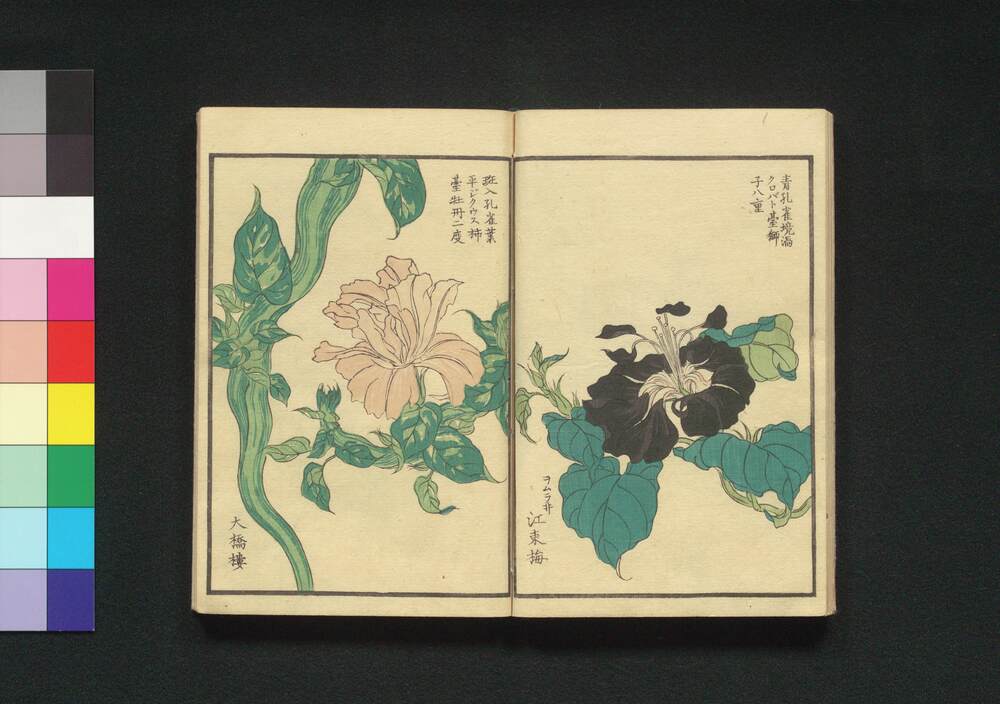 青孔雀境渦
クロバト臺獅
子八重
ヲムラ井
江東梅
斑入孔雀葉
平ジクウス柿
臺牡丹二度
大橋樓